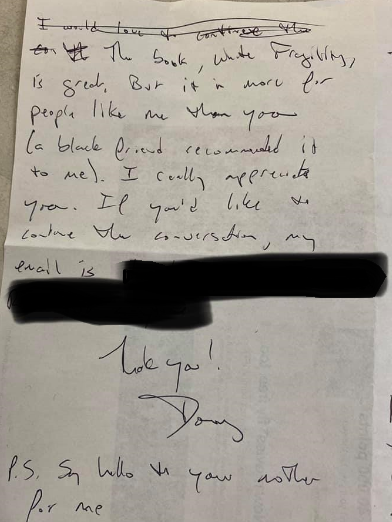 I would love to continue the
The book, White Fragility,
is great. But it is more for
people like me than you
(a black friend recommended it
to me). I really appreciate
you. If you'd like to
contune the conversation, my
email is
Thank you!
P.S. Say hello to your mother
for me